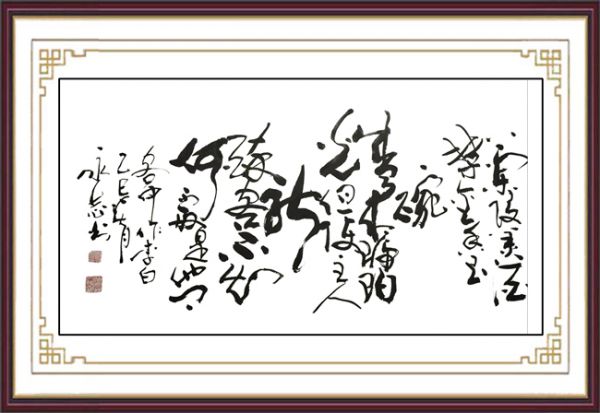 兰陵美酒
郁金香玉
碗
盛来琥珀
光但使主人
能
醉客不知
何处是他乡
客中作李白
乙巳 月
永志书